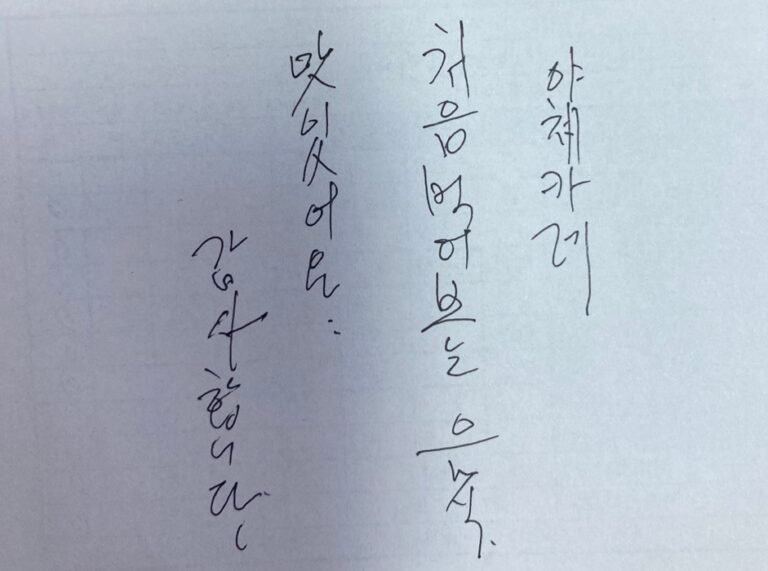 야채카레
처음먹어보는 음식.
맛있어요.
감사합니다.